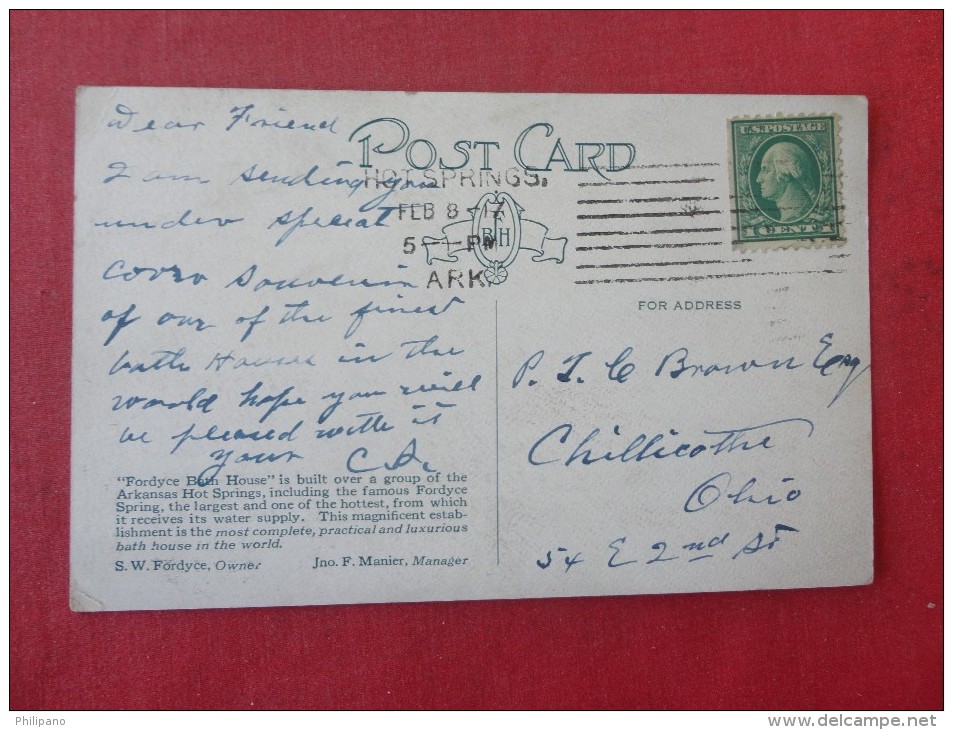 Dear Friend
I am sending you
under special
covro Souvenir
of our of the finest
bath Houses in the
world hope you will
be pleased with it
your
POST CARD
HOT SPRINGS.
FEB 8-17
5-PM
ARK.
FBH
U.S. POSTAGE
1 CENT 1
FOR ADDRESS
P. T. C Brown Esq
Chillicothe
Ohio
54 E 2nd St
"Fordyce Bath House" is built over a group of the
Arkansas Hot Springs, including the famous Fordyce
Spring, the largest and one of the hottest, from which
it receives its water supply. This magnificent estab-
lishment is the most complete, practical and luxurious
bath house in the world.
S. W. Fordyce, Owner Jno. F. Manier, Manager
Philipano
www.delcampe.net